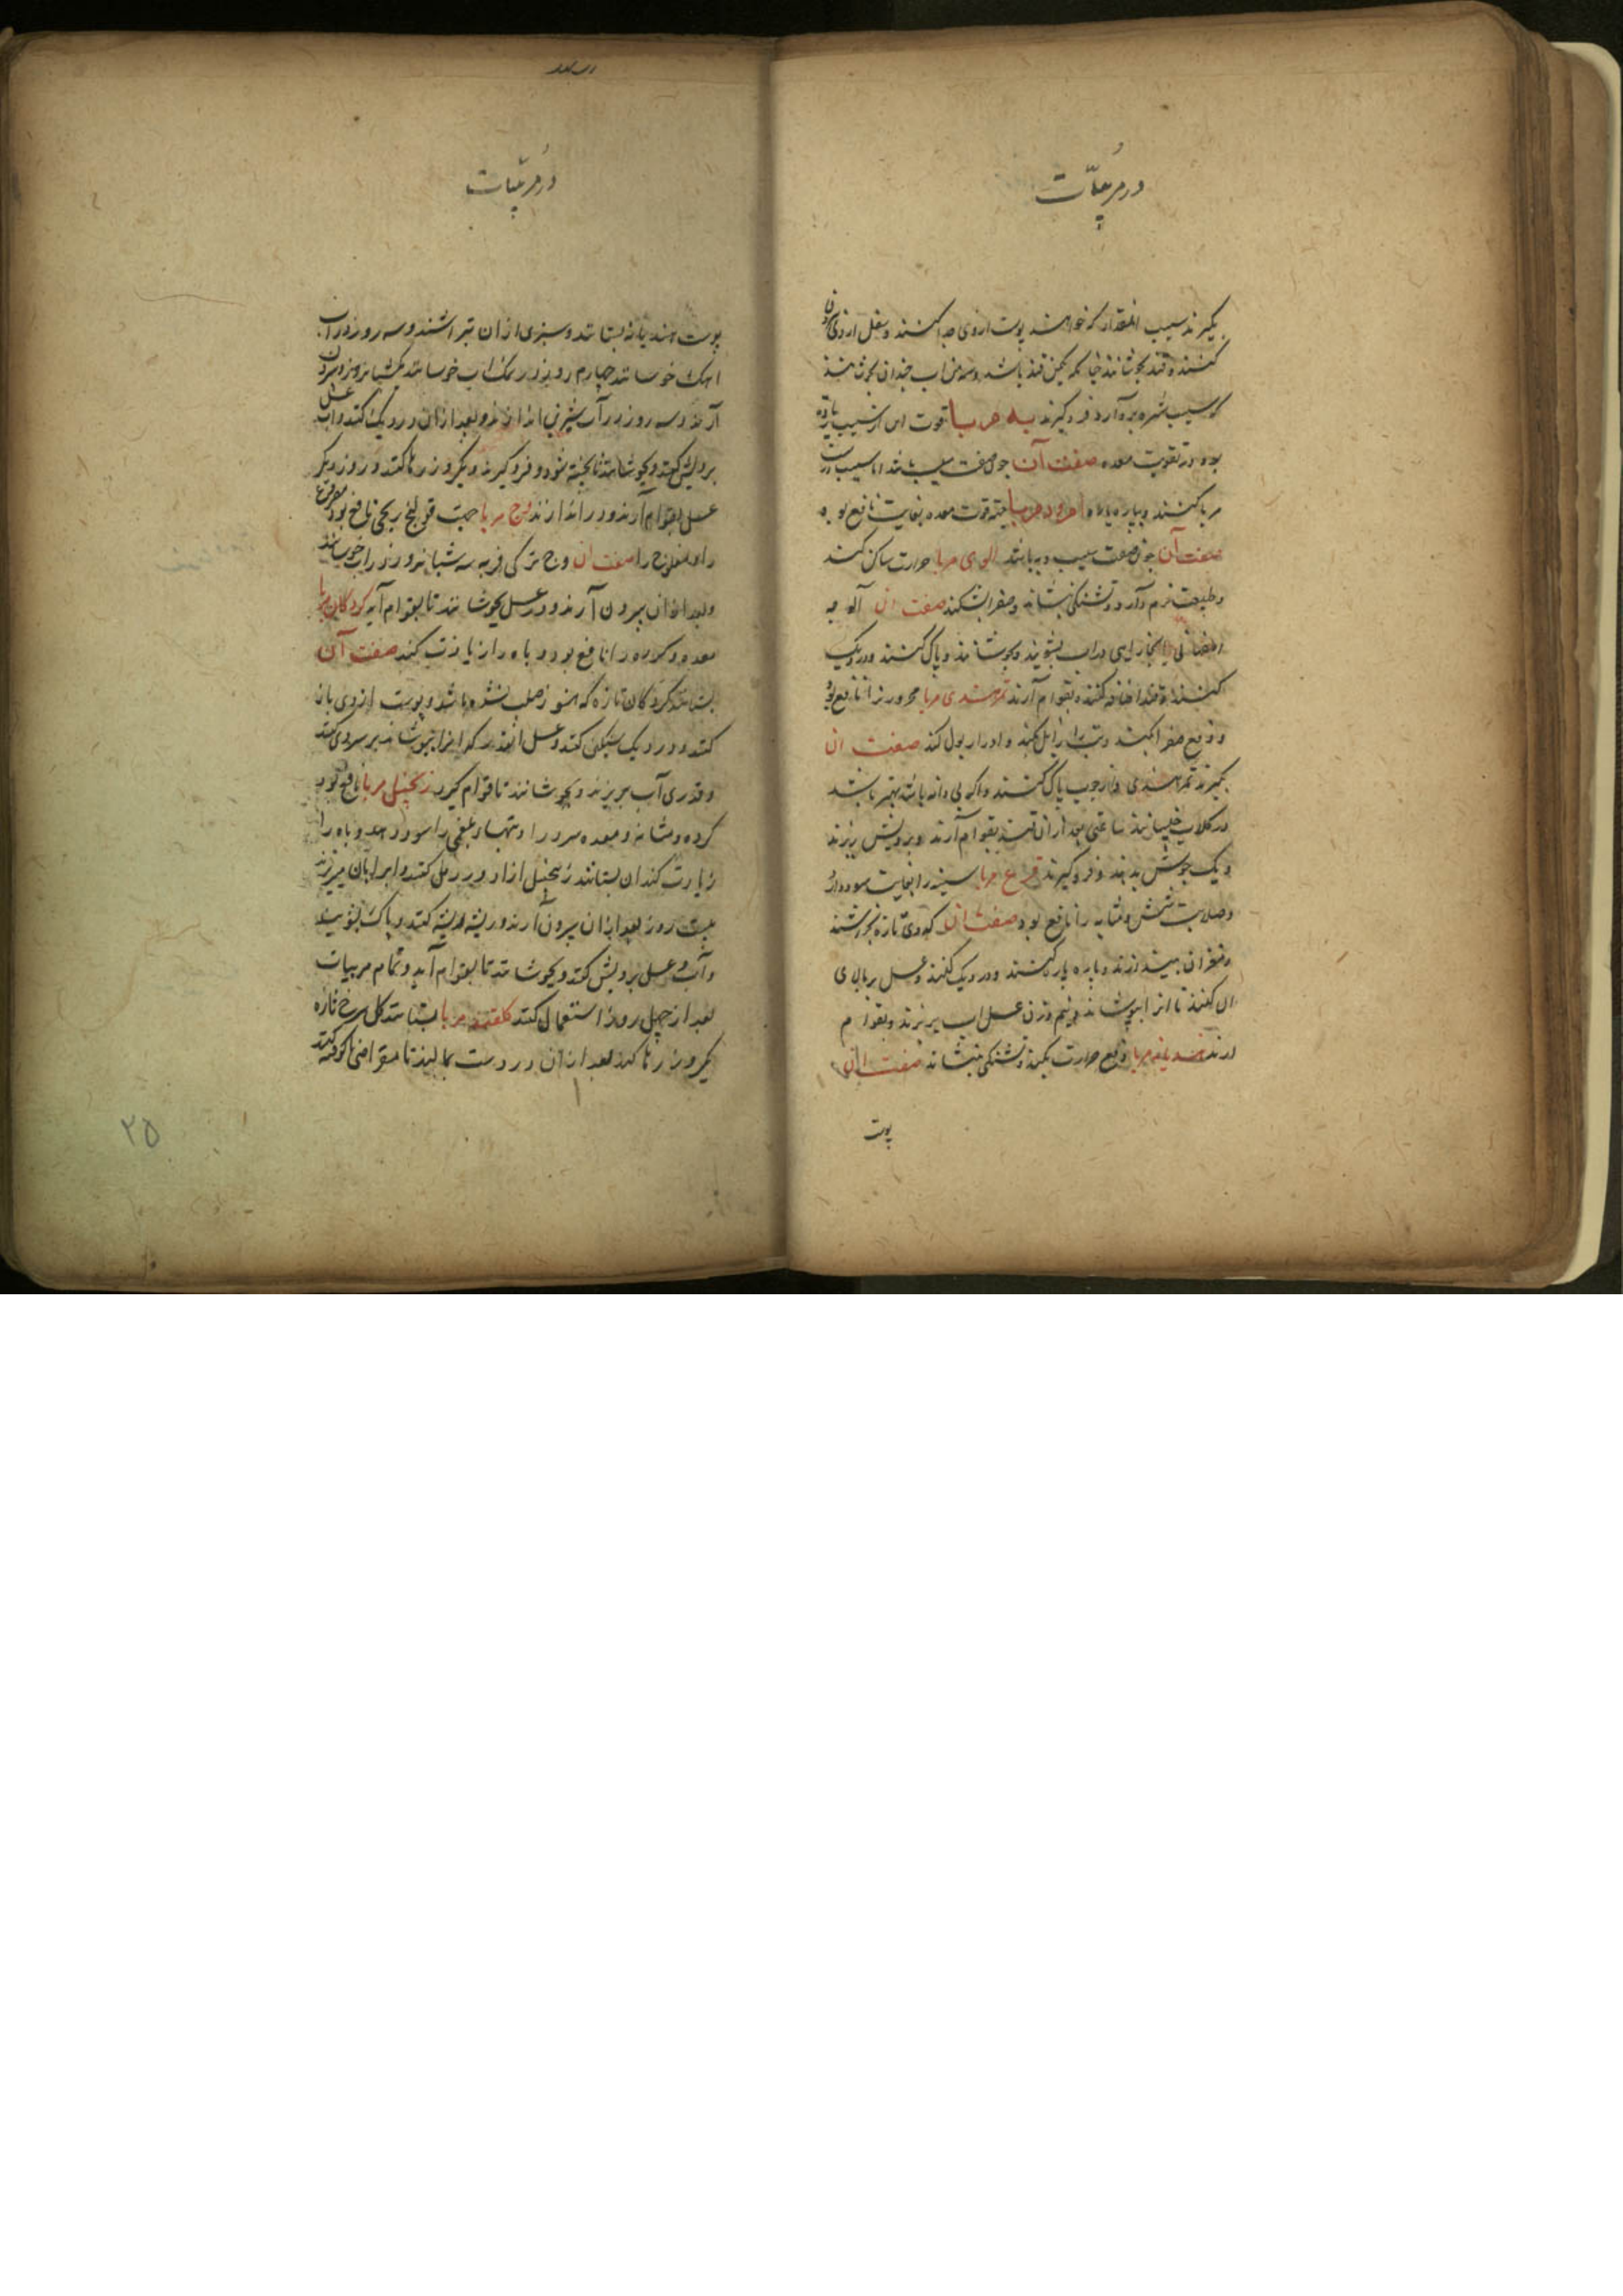 در مربیّات
بگیرند سیب انمقدار که خواهند پوست ازوی جدا کنند و ثفل ازوی بیرون
کنند و قند بجوشانند چنانکه یکمن قند باشد و سه من آب چندان بجوشانند
که سیب مهره برآرد فرو گیرند به مربا قوت این از سیب زیاده
بود در تقویت معده صفت آن چون صفت سیب باشد اما سیب درست
مربا کنند و به پاره پاره امرود مربا جهة قوت معده بغایت نافع بود
صفت آن چون صفت سیب و به باشد الوی مربا حرارت ساکن کند
و طبیعت نرم دارد و تشنگی بنشاند و صفرا بشکند صفت ان آلوچه
بخارایی در آب بشویند و بجوشانند و پاک کنند و در دیک
کنند و قند اضافه کنند و بقوام آرند تمر هندی مربا محرور را نافع بود
و دفع صفرا کند و تب را زایل کند و ادرار بول کند صفت ان
بگیرند تمر هندی و از چوب پاک کنند و اگر بی دانه باشد بهتر باشد
در گلاب خیسانند ساعتی بعد از ان قند بقوام آرند و برویش ریزند
و یک جوش بدهند و فرو گیرند قرع مربا سینه را بغایت سود دارد
و صلابت شش و مثانه را نافع بود صفت ان کدوی تازه بخراشند
و مغز ان بیندازند و پاره پاره کنند و در دیک کنند و عسل بر بالای
ان کنند تا انرا بپوشاند و نیم وزن عسل آب بریزند و بقوام
ارند هندیانه مربا دفع حرارت بکند و تشنگی بنشاند صفت ان
پوست
در مربیّات
پوست هندیانه بستانند و سبزی از ان بتراشند و سه روز در آب
اهک خوسانند چهارم روز در نمک اب خوسانند یکشبانروز و بیرون
آرند و سه روز در آب شیرین اندازند و بعد از ان در دیک کنند و آب عسل
برویش کنند و بجوشانند تا پخته شود و فرو گیرند و یکروز رها کنند و روز دیگر
عسل بقوام آرند و در اندازند وج مربا جهت قولنج ریحی نافع بود مفروع
را و مفلوج را صفت ان وج ترکی فربه سه شبانروز در آب خوسانند
و بعد از ان بیرون آرند و در عسل بجوشانند تا بقوام آید کردکان مربا
معده و کرده را نافع بود و باه را زیادت کند صفت آن
بستانند کردکان تازه که هنوز صلب نشده باشد و پوست ازوی باز
کنند و در دیک سنکین کنند و عسل انقدر که انرا بپوشاند بر سروی کنند
و قدری آب بریزند و بجوشانند تا قوام گیرد زنجبیل مربا نافع بود
کرده و مثانه و معده سرد را و تبهاء بلغمی را سود دهد و باه را
زیادت کند ان بستانند زنجبیل ازاد و در رمل کنند و اب بران میریزند
بیست روز بعد از ان بیرون آرند و ریشه ریشه کنند و پاک بشویند
و آب و عسل برویش کنند و بجوشانند تا بقوام آید و تمام مربیات
بعد از چهل روز استعمال کنند کلقند مربا بستانند کل سرخ تازه
یکروز رها کنند بعد از ان در دست بمالند تا بمقراضی یا کوفته کنند
۲۵